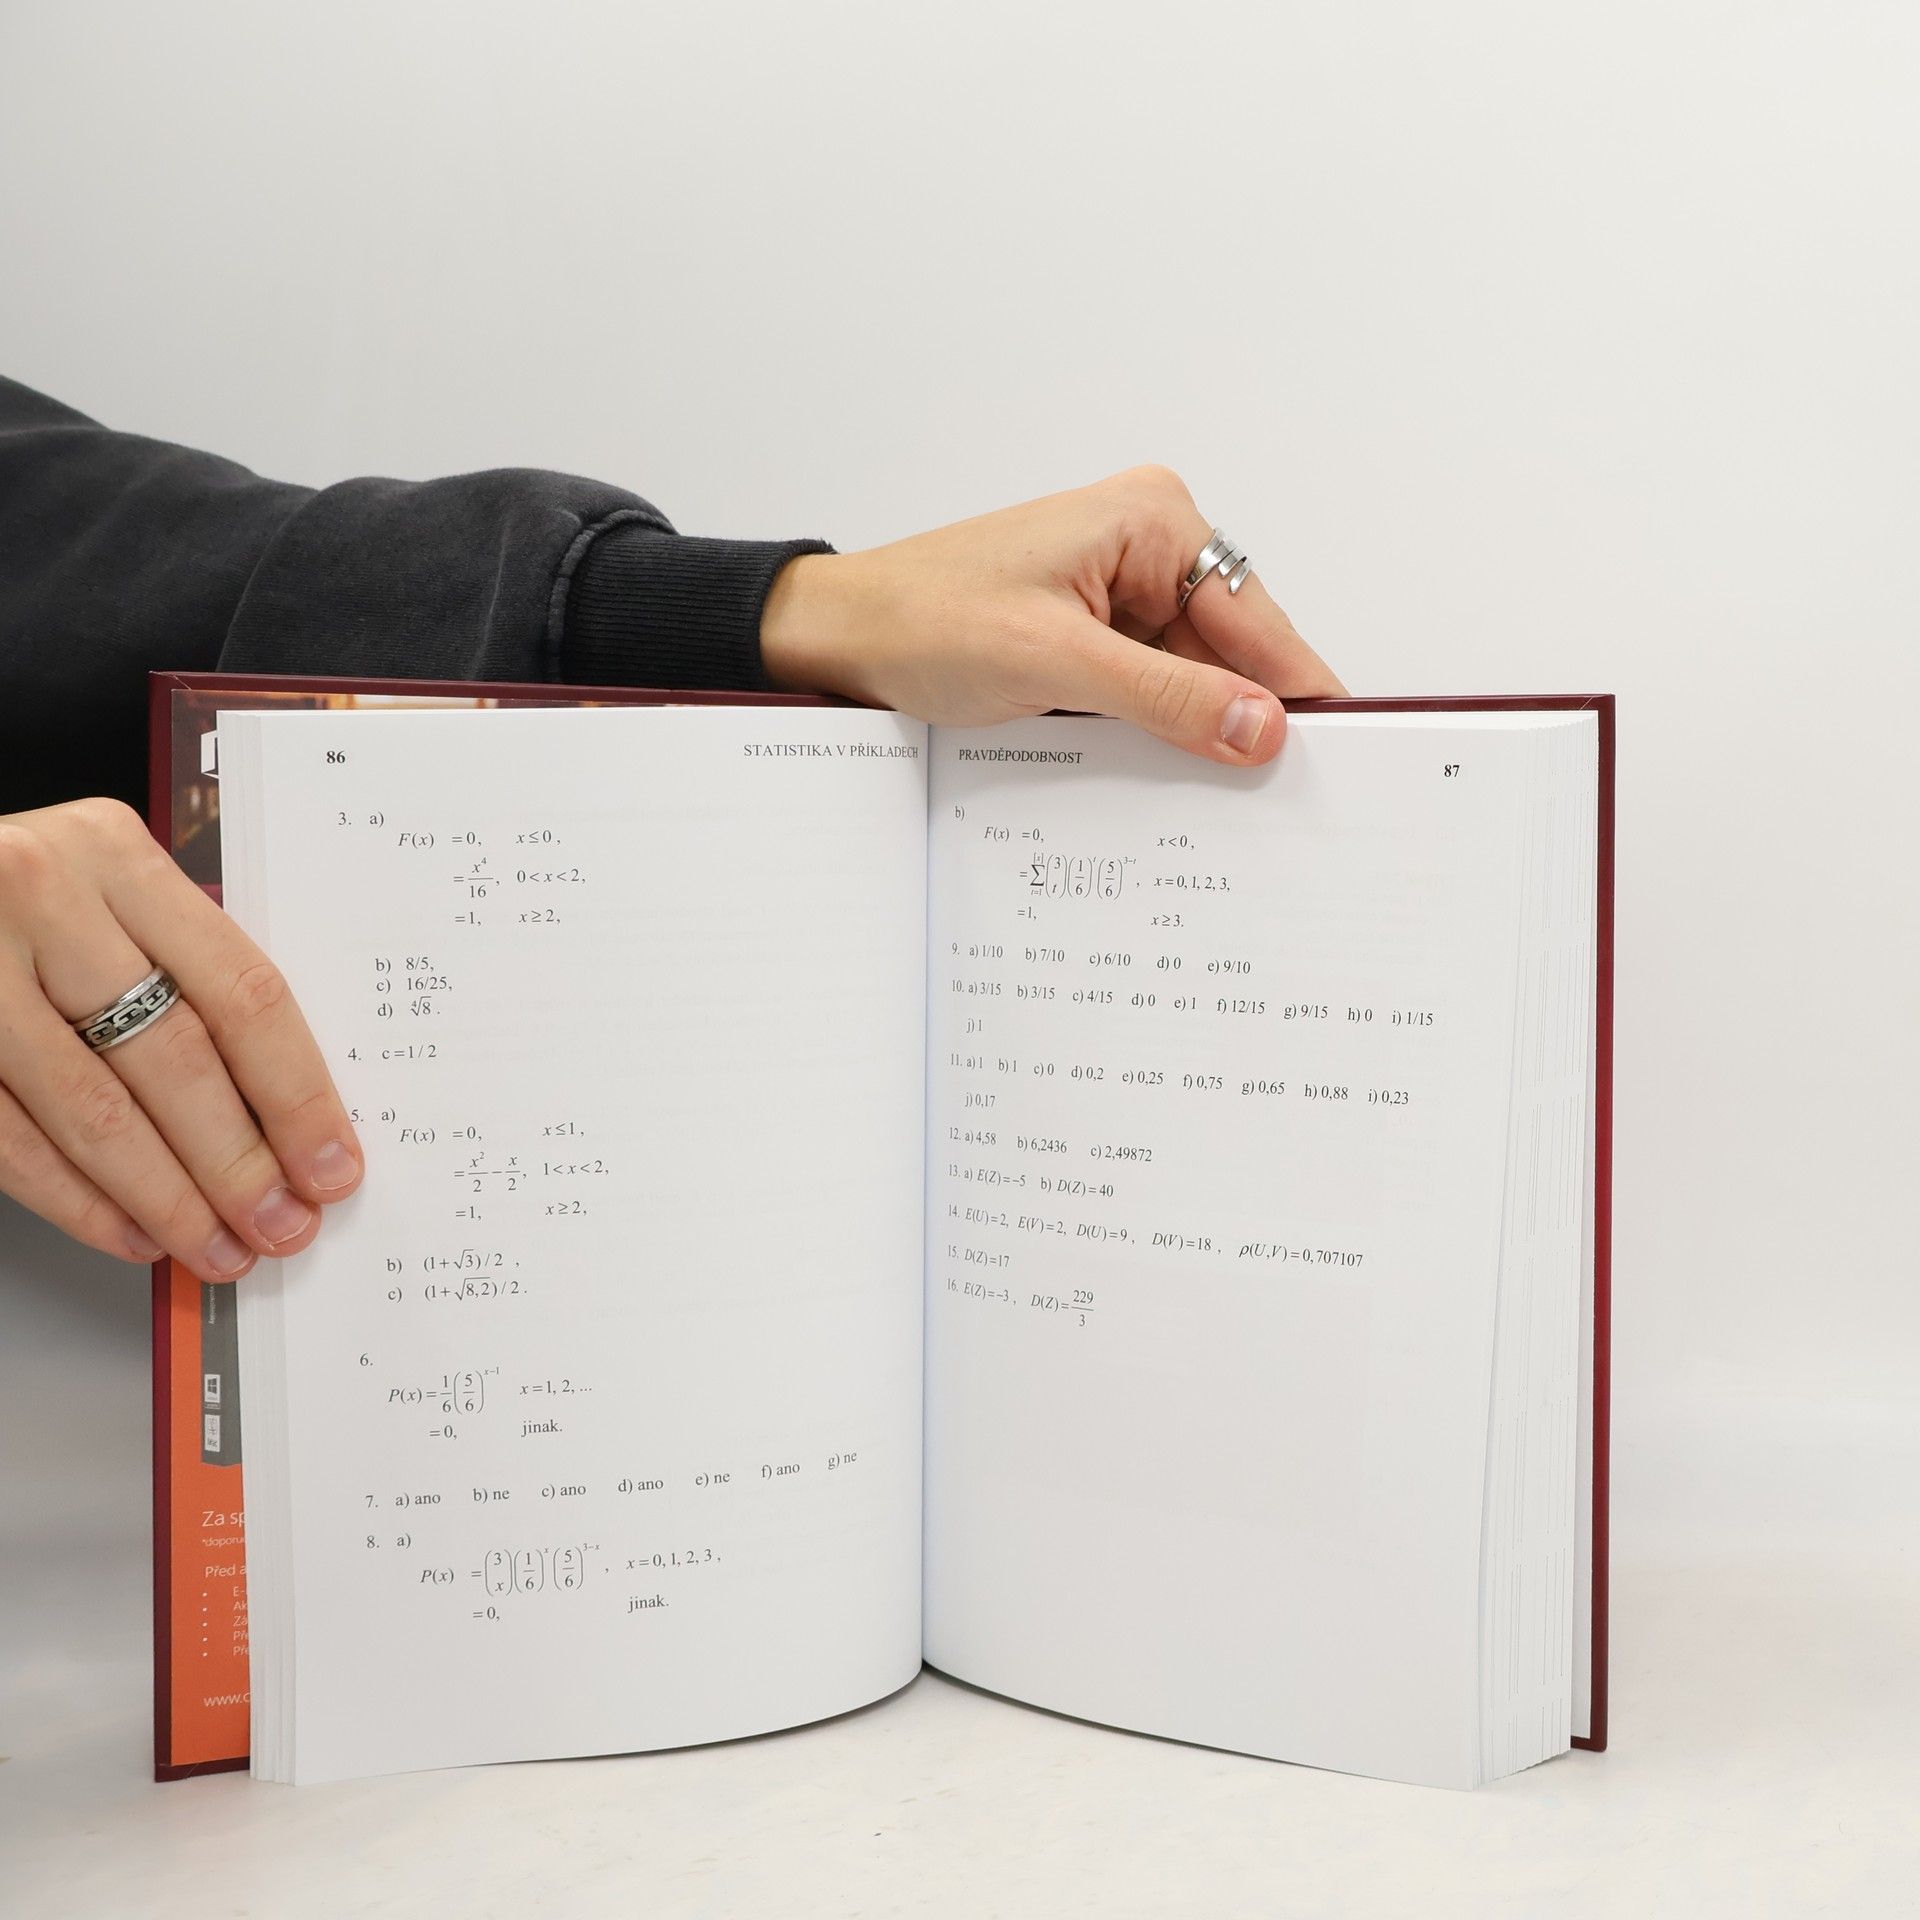 86 STATISTIKA V PŘÍKLADECH
3. a)
F(x) =0, x≤0,
=x⁴/16, 0<x<2,
=1, x≥2,
b) 8/5,
c) 16/25,
d) ∜8.
4. c=1/2
5. a)
F(x) =0, x≤1,
=x²/2−x/2, 1<x<2,
=1, x≥2,
b) (1+√3)/2 ,
c) (1+√8,2)/2.
6.
P(x)=1/6(5/6)^(x−1) x=1, 2, ...
=0, jinak.
7. a) ano b) ne c) ano d) ano e) ne f) ano g) ne
8. a)
P(x) =(3 x)(1/6)^x(5/6)^(3−x), x=0, 1, 2, 3,
=0, jinak.
PRAVDĚPODOBNOST 87
b)
F(x) =0, x<0,
=∑_(t=1)^([x])(3 t)(1/6)^t(5/6)^(3−t), x=0, 1, 2, 3,
=1, x≥3.
9. a) 1/10 b) 7/10 c) 6/10 d) 0 e) 9/10
10. a) 3/15 b) 3/15 c) 4/15 d) 0 e) 1 f) 12/15 g) 9/15 h) 0 i) 1/15
j) 1
11. a) 1 b) 1 c) 0 d) 0,2 e) 0,25 f) 0,75 g) 0,65 h) 0,88 i) 0,23
j) 0,17
12. a) 4,58 b) 6,2436 c) 2,49872
13. a) E(Z)=−5 b) D(Z)=40
14. E(U)=2, E(V)=2, D(U)=9, D(V)=18, ρ(U,V)=0,707107
15. D(Z)=17
16. E(Z)=−3, D(Z)=229/3
Za
Před
www.